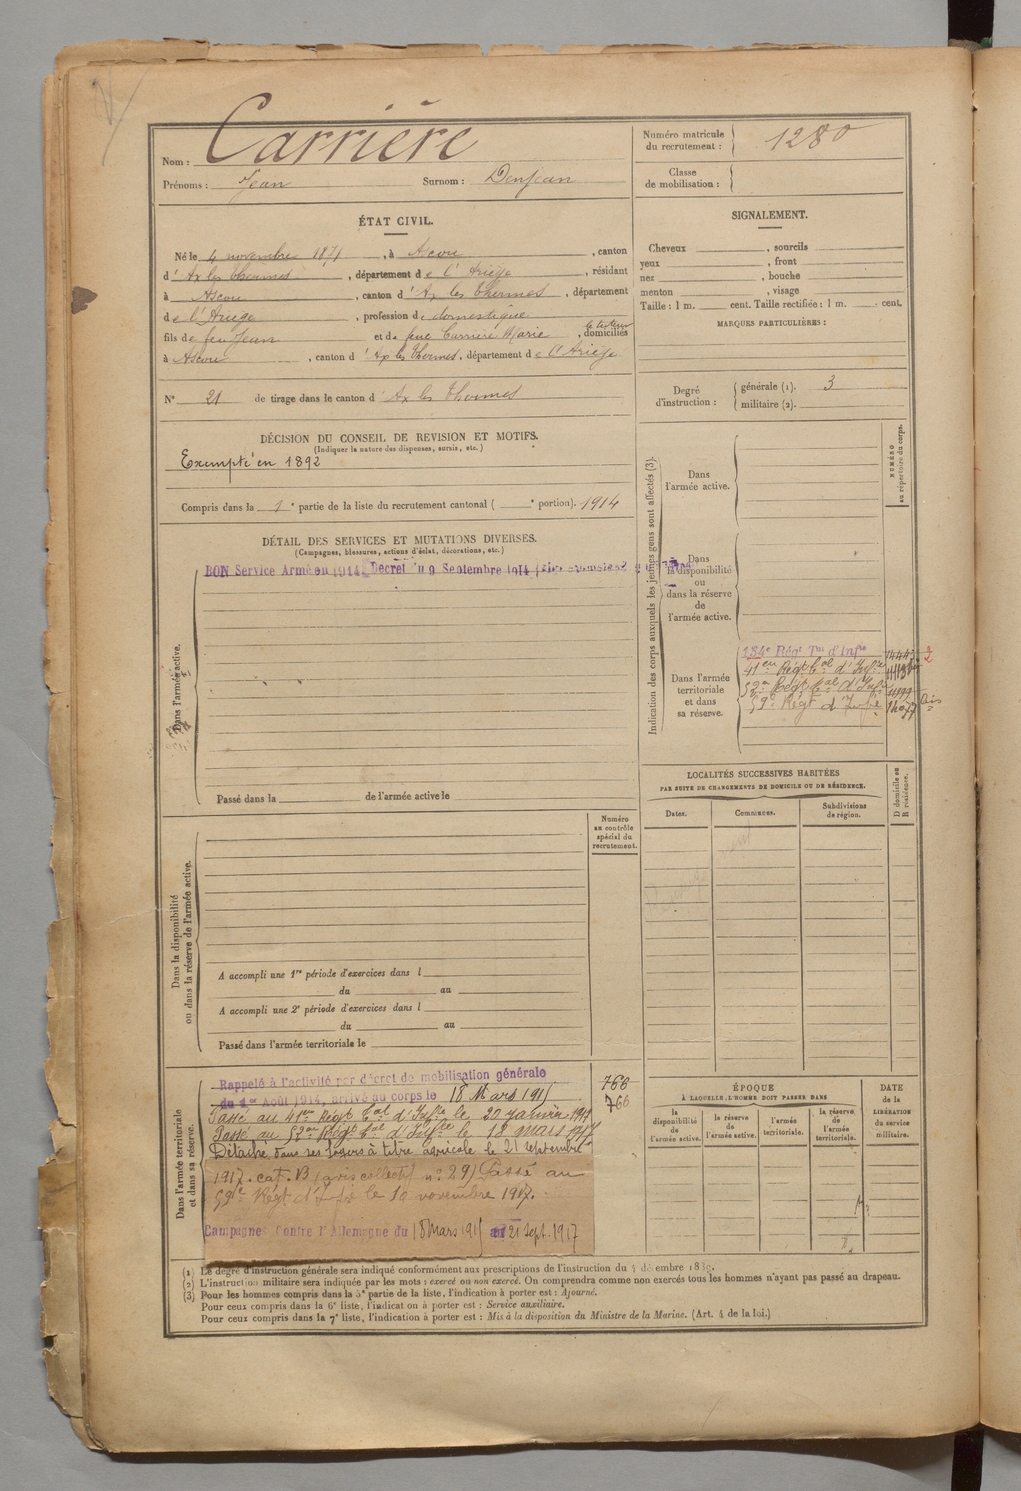 Nom : Carrière
Prénoms : Jean Surnom : Denjean
Numéro matricule du recrutement : 1280
Classe de mobilisation :
ÉTAT CIVIL.
Né le 4 novembre 1871, à Ascou, canton
d'Ax les Thermes, département de l'Ariège, résidant
à Ascou, canton d'Ax les Thermes, département
de l'Ariège, profession de domestique
fils de feu Jean et de feue Carrière Marie, domiciliés
à Ascou, canton d'Ax les Thermes, département de l'Ariège
N° 21 de tirage dans le canton d'Ax les Thermes
SIGNALEMENT.
Cheveux , sourcils
yeux , front
nez , bouche
menton , visage
Taille : 1 m. cent. Taille rectifiée : 1 m. cent.
MARQUES PARTICULIÈRES :
Degré d'instruction : générale (1). 3
militaire (2).
DÉCISION DU CONSEIL DE REVISION ET MOTIFS.
(Indiquer la nature des dispenses, sursis, etc.)
Exempté en 1892
Compris dans la 1e partie de la liste du recrutement cantonal ( e portion). 1914
DÉTAIL DES SERVICES ET MUTATIONS DIVERSES.
(Campagnes, blessures, actions d'éclat, décorations, etc.)
BON Service Armé en 1914. Decret du 9 Septembre 1914
Dans l'armée active.
Passé dans la de l'armée active le
Indication des corps auxquels les jeunes gens sont affectés (3).
NUMÉRO au répertoire du corps.
Dans l'armée active.
Dans la disponibilité ou dans la réserve de l'armée active.
Dans l'armée territoriale et dans sa réserve.
134e Régt Tal d'Infie 14443
41eme Régt Cal d'Infie
52e Régt Cal d'Infie
59e Régt d'Infie
LOCALITÉS SUCCESSIVES HABITÉES
PAR SUITE DE CHANGEMENTS DE DOMICILE OU DE RÉSIDENCE.
Dates. Communes. Subdivisions de région.
D domicile ou R résidence.
Numéro au contrôle spécial du recrutement.
Dans la disponibilité ou dans la réserve de l'armée active.
A accompli une 1re période d'exercices dans l
du au
A accompli une 2e période d'exercices dans l
du au
Passé dans l'armée territoriale le
Dans l'armée territoriale et dans sa réserve.
Rappelé à l'activité par décret de mobilisation générale 766
du 1er Août 1914, arrivé au corps le 18 Mars 1915 766
Passé au 41eme Régt Cal d'Infie le 20 janvier 1917
Passé au 52eme Régt Cal d'Infie le 18 mars 1917
Détaché dans ses foyers à titre agricole le 21 septembre
1917. cat. B (avis collectif n° 29) Passé au
59e Régt d'Infie le 10 novembre 1917.
Campagnes Contre l'Allemagne du 18 Mars 1915 au 21 sept. 1917
ÉPOQUE
À LAQUELLE L'HOMME DOIT PASSER DANS
la disponibilité de l'armée active. la réserve de l'armée active. l'armée territoriale. la réserve de l'armée territoriale.
DATE de la LIBÉRATION du service militaire.
(1) Le degré d'instruction générale sera indiqué conformément aux prescriptions de l'instruction du 4 décembre 1889.
(2) L'instruction militaire sera indiquée par les mots : exercé ou non exercé. On comprendra comme non exercés tous les hommes n'ayant pas passé au drapeau.
(3) Pour les hommes compris dans la 5e partie de la liste, l'indication à porter est : Ajourné.
Pour ceux compris dans la 6e liste, l'indication à porter est : Service auxiliaire.
Pour ceux compris dans la 7e liste, l'indication à porter est : Mis à la disposition du Ministre de la Marine. (Art. 4 de la loi.)